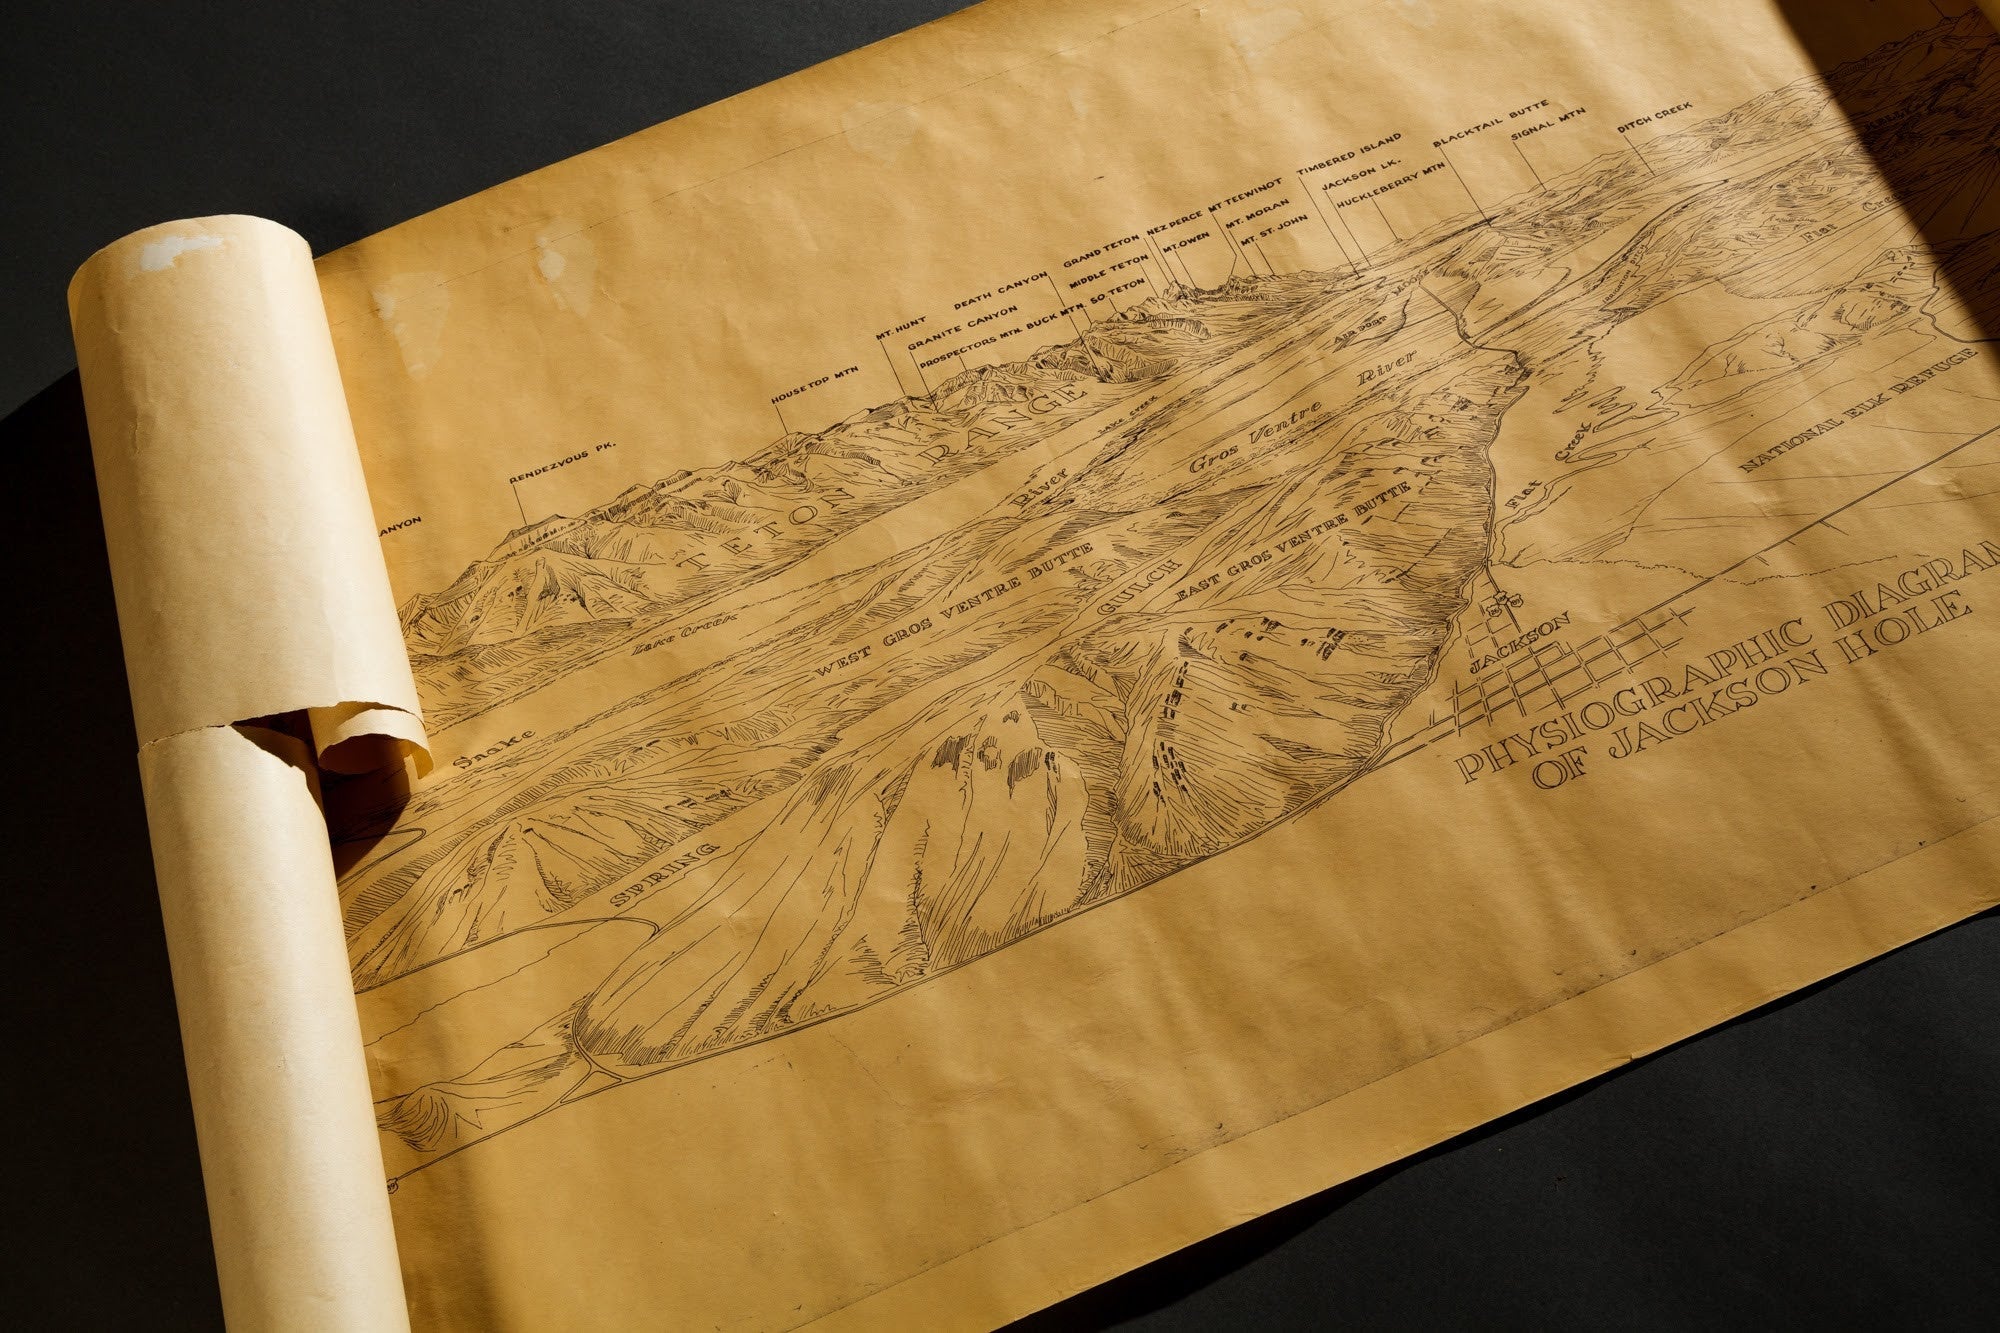 ANYON
RENDEZVOUS PK.
HOUSETOP MTN
MT. HUNT
GRANITE CANYON
PROSPECTORS MTN.
DEATH CANYON
BUCK MTN
GRAND TETON
MIDDLE TETON
SO. TETON
NEZ PERCE
MT. OWEN
MT TEEWINOT
MT. MORAN
MT. ST. JOHN
TIMBERED ISLAND
JACKSON LK.
HUCKLEBERRY MTN
BLACKTAIL BUTTE
SIGNAL MTN
DITCH CREEK
TETON RANGE
Lake Creek
LAKE CREEK
Snake River
MOOSE
AIR PORT
Gros Ventre River
WEST GROS VENTRE BUTTE
SPRING GULCH
EAST GROS VENTRE BUTTE
Flat Creek
Flat Creek
NATIONAL ELK REFUGE
JACKSON
PHYSIOGRAPHIC DIAGRAM
OF JACKSON HOLE